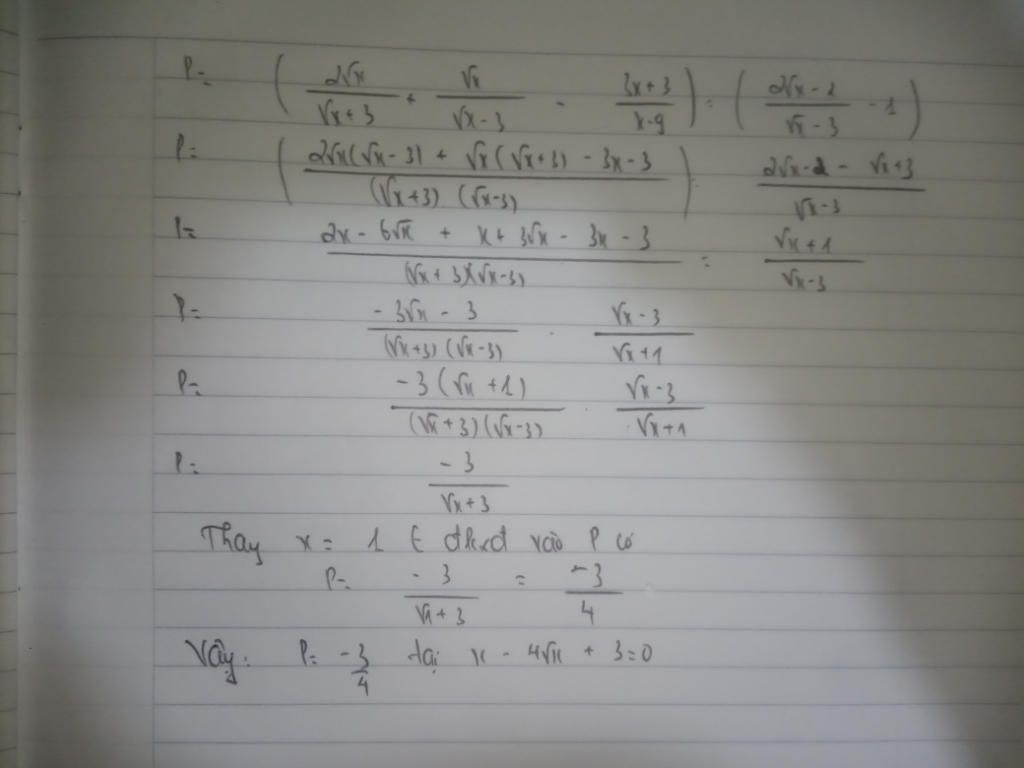 P = ( 2√x / √x+3 + √x / √x-3 - 3x+3 / x-9 ) : ( 2√x-2 / √x-3 - 1 )
P = ( 2√x(√x-3) + √x(√x+3) - 3x-3 / (√x+3) (√x-3) ) : 2√x-2 - √x+3 / √x-3
P = 2x - 6√x + x + 3√x - 3x - 3 / (√x+3)(√x-3) : √x+1 / √x-3
P = -3√x - 3 / (√x+3) (√x-3) . √x-3 / √x+1
P = -3(√x+1) / (√x+3)(√x-3) . √x-3 / √x+1
P = -3 / √x+3
Thay x = 1 ∈ đkxđ vào P có
P = -3 / √1+3 = -3 / 4
Vậy: P = -3/4 tại x - 4√x + 3 = 0